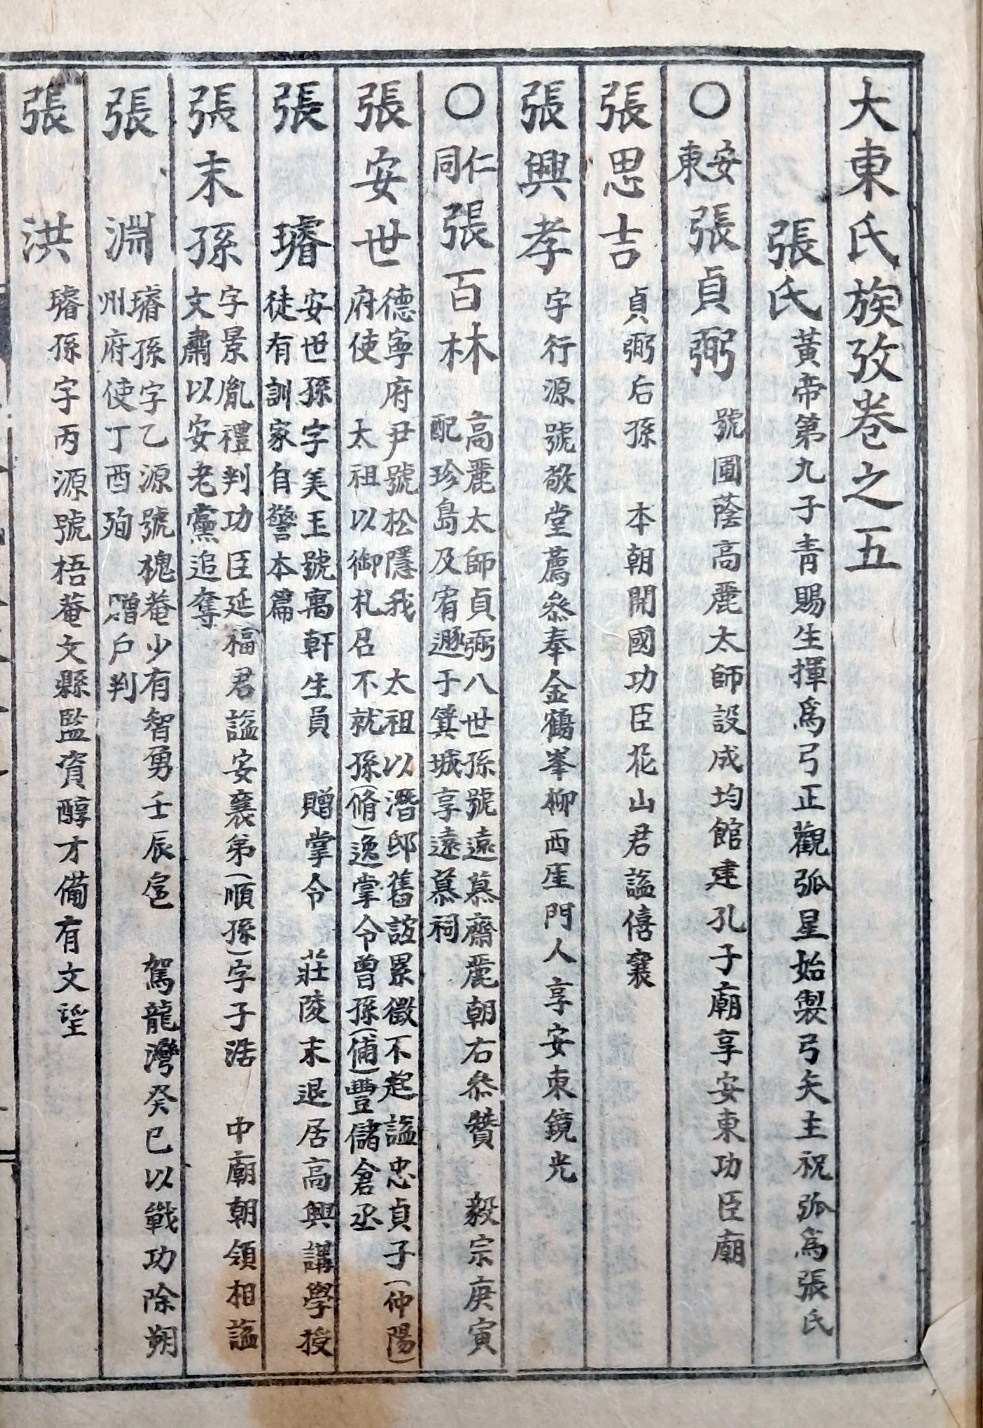 大東氏族攷卷之五
張氏 黃帝第九子靑賜生揮爲弓正觀弧星始製弓矢主祝弧爲張氏
〇安東 張貞弼 號圃蔭高麗太師設成均館建孔子廟享安東功臣廟
張思吉 貞弼后孫 本朝開國功臣花山君諡僖襄
張興孝 字行源號敬堂薦叅奉金鶴峯柳西厓門人享安東鏡光
〇仁同 張百林 高麗太師貞弼八世孫號遠慕齋麗朝右叅贊 毅宗庚寅
配珍島及宥遯于箕城享遠慕祠
張安世 德寧府尹號松隱我 太祖以潛邸舊誼累徵不起諡忠貞子(仲陽)
府使 太祖以御札召不就孫(脩)逸掌令曾孫(俌)豐儲倉丞
張璿 安世孫字美玉號寓軒生員 贈掌令 莊陵末退居高興講學授
徒有訓家自警本篇
張末孫 字景胤禮判功臣延福君諡安襄弟(順孫)字子浩 中廟朝領相諡
文肅以安老黨追奪
張淵 璿孫字乙源號槐菴少有智勇壬辰扈 駕龍灣癸巳以戰功除朔
州府使丁酉殉 贈戶判
張洪 璿孫字丙源號梧菴文縣監資醇才備有文望